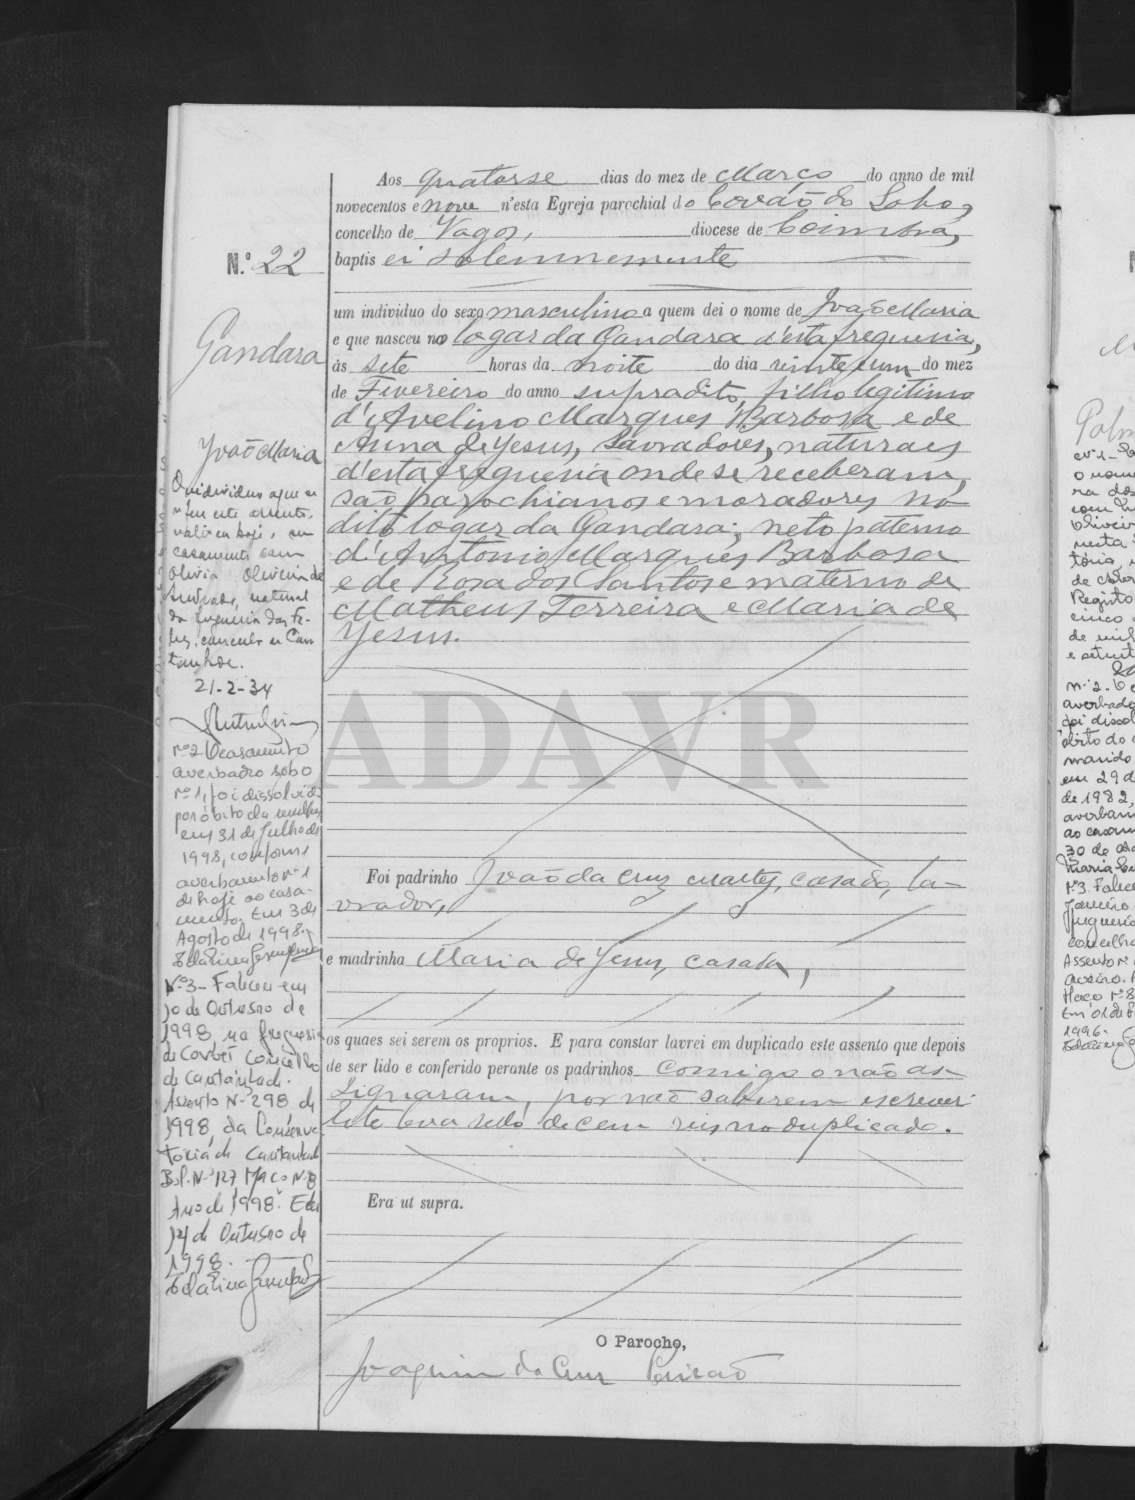 Aos quatorse dias do mez de Março do anno de mil
novecentos e nove n'esta Egreja parochial do Covão do Lobo,
concelho de Vagos, diocese de Coimbra,
baptisei solemnemente
N.º 22
um individuo do sexo masculino a quem dei o nome de João Maria
e que nasceu no logar da Gandara d'esta freguesia,
ás sete horas da noite do dia vinte e um do mez
de Fevereiro do anno supradito, filho legitimo
d'Avelino Marques Barbosa e de
Anna de Jesus, lavradores, naturaes
d'esta freguesia onde se receberam,
são parochianos e moradores no
dito logar da Gandara; neto paterno
d'Antonio Marques Barbosa
e de Rosa dos Santos e materno de
Matheus Ferreira e Maria de
Jesus.
Foi padrinho João da Cruz casado, la-
vrador,
e madrinha Maria de Jesus, casada,
os quaes sei serem os proprios. E para constar lavrei em duplicado este assento que depois
de ser lido e conferido perante os padrinhos comigo o não as-
signaram, por não saberem escrever.
Leva sello de cem reis no duplicado.
Era ut supra.
O Parocho,
Joaquim da Cruz
Gandara
João Maria
O individuo a que se
casamento com
Olivia Oliveira de
natural
da freguesia das Fe-
bres, concelho de Can-
tanhede.
21-2-34
nº 2 O casamento
averbado sob o
nº 1, foi dissolvido
por óbito da mulher
em 31 de Julho de
1998, conforme
averbamento nº 1
de hoje ao casa-
mento. Em 3 de
Agosto de 1998.
Nº 3 - Faleceu em
10 de Outubro de
1998 na freguesia
de concelho
de Cantanhede.
Assento Nº 298 de
1998 da Conserva-
tória de Cantanhede
Bol. Nº 127 Maço Nº 8
Ano de 1998. Em
14 de Outubro de
1998.
ADAVR